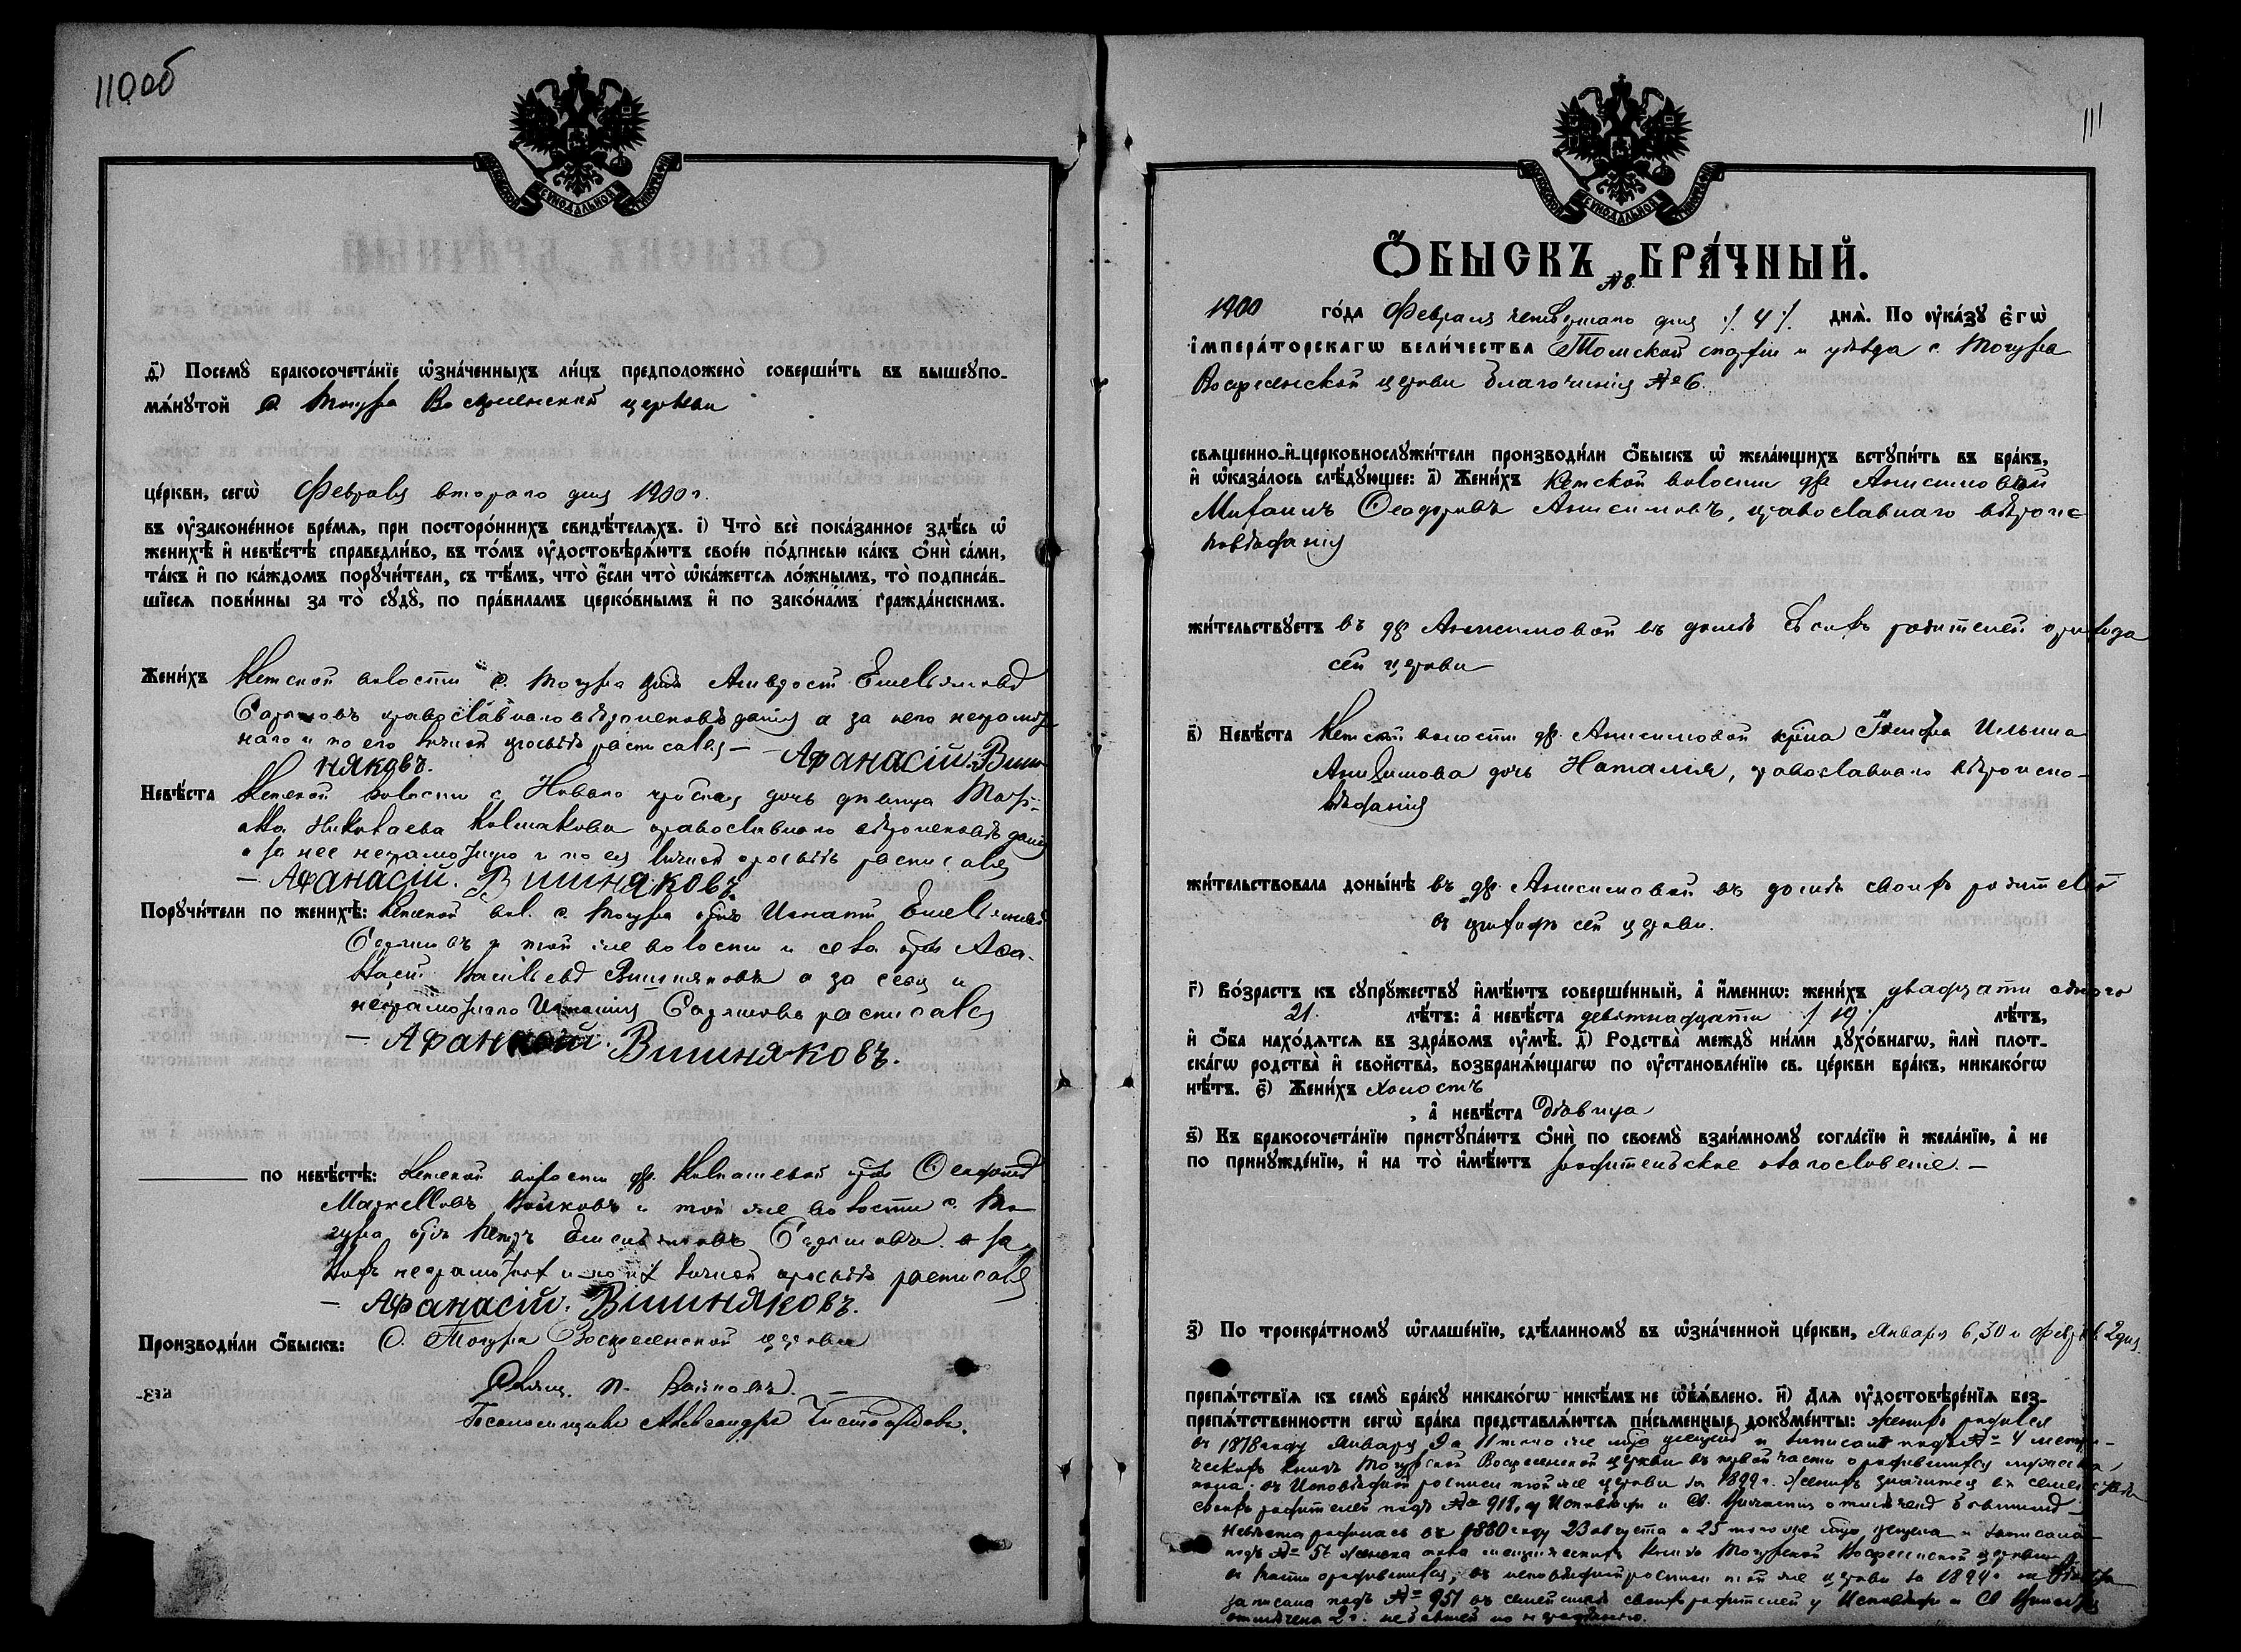 110об
СѴНОДАЛЬНОЙ
ѳ҃) Посемꙋ̀ бракосочета́нїе ѡ҆зна́ченныхъ ли́цъ предположено̀ соверши́ть въ вышеꙋпо-
мѧ́нꙋтой с. Тогура Воскресенской церкви
це́ркви, сегѡ̀ Февраля втораго дня 1900 г.
въ ᲂу҆законе́нное вре́мѧ, при посторо́ннихъ свидѣ́телѧхъ. і҃) Что̀ всѐ пока́занное здѣ́сь ѡ҆
женихѣ̀ и҆ невѣ́стѣ справедли́во, въ то́мъ ᲂу҆достовѣрѧ́ютъ свое́ю по́дписью ка́къ ѻ҆нѝ са́ми,
та́къ и҆ по ка́ждомъ порꙋчи́тели, съ тѣ́мъ, что̀ є҆́сли что̀ ѡ҆ка́жетсѧ ло́жнымъ, то̀ подписа́в-
шїесѧ пови́нны за то̀ сꙋдꙋ̀, по пра́виламъ церко́внымъ и҆ по зако́намъ гражда́нскимъ.
Жени́хъ Кетской волости с. Тогура Емельяновъ
православнаго вѣроисповѣданія а за него неграмот
наго и по его личной просьбѣ росписался — Афанасій Виш
няковъ.
Невѣ́ста Кетской волости с. дочь дѣвица
Николаева Колмакова православнаго вѣроисповѣданія
а за нее неграмотную и по ея личной просьбѣ росписался
— Афанасій. Вишняковъ
Порꙋчи́тели по женихѣ̀: Кетской вол. с. Тогура Игнатій Емельяновъ
и той же волости и села Афа-
насій Васильевъ Вишняковъ а за себя и
неграмотнаго Игнатія росписался
— Афанасій. Вишняковъ.
по невѣ́стѣ: Кетской волости др. Колпашевой
и той же волости с. То
гура Петръ Емельяновъ а за
нихъ неграмотныхъ и по ихъ личной просьбѣ росписался
— Афанасій. Вишняковъ.
Производи́ли ѻ҆́быскъ: С. Тогура Воскресенской церкви
Священ. П.
Псаломщикъ Александръ
111
СѴНОДАЛЬНОЙ
Ѻ҆́БЫСКЪ БРА́ЧНЫЙ.
№ 8.
1900 го́да Февраля четвертаго дня /4/. днѧ̀. По ᲂу҆ка́зꙋ є҆гѡ̀
і҆мпера́торскагѡ вели́чества Томской губерніи и уѣзда с. Тогура
Воскресенской церкви благочинія № 6.
свѧщенно-и҆-церковнослꙋжи́тели производи́ли ѻ҆́быскъ ѡ҆ жела́ющихъ встꙋпи́ть въ бра́къ,
и҆ ѡ҆каза́лось слѣ́дꙋющее: а҃) Жени́хъ Кетской волости др. Анисимовой
Михаилъ Ѳеодоровъ Анисимовъ, православнаго вѣроис-
повѣданія
жи́тельствꙋетъ въ др. Анисимовой въ домѣ своихъ родителей прихода
сей церкви
в҃) Невѣ́ста Кетской волости др. Анисимовой Ильина
Анисимова дочь Наталія, православнаго вѣроиспо-
вѣданія
жи́тельствовала доны́нѣ въ др. Анисимовой въ домѣ своихъ родителей
въ приходѣ сей церкви.
г҃) Во́зрастъ къ сꙋпрꙋ́жествꙋ и҆мѣ́ютъ соверше́нный, а҆ и҆́меннѡ: жени́хъ двадцати одного
21. лѣ́тъ: а҆ невѣ́ста девятнадцати /19/ лѣ́тъ,
и҆ ѻ҆́ба нахо́дѧтсѧ въ здра́вомъ ᲂу҆мѣ̀. д҃) Родства̀ междꙋ̀ ни́ми дꙋхо́внагѡ, и҆лѝ плот-
ска́гѡ родства̀ и҆ сво́йства, возбранѧ́ющагѡ по ᲂу҆становле́нїю св. це́ркви бра́къ, никако́гѡ
нѣ́тъ. є҃) Жени́хъ холостъ
, а҆ невѣ́ста дѣвица
ѕ҃) Къ бракосочета́нїю пристꙋпа́ютъ ѻ҆нѝ по своемꙋ̀ взаи́мномꙋ согла́сїю и҆ жела́нїю, а҆ не
по принꙋжде́нїю, и҆ на то̀ и҆мѣ́ютъ родительское благословеніе. —
з҃) По троекра́тномꙋ ѡ҆глаше́нїю, сдѣ́ланномꙋ въ ѡ҆зна́ченной це́ркви, Января 6, 30 и февраля 2 дня
препѧ́тствїѧ къ семꙋ̀ бра́кꙋ никако́гѡ никѣ́мъ не ѡ҆б̾ѧ́влено. и҃) Длѧ ᲂу҆достовѣре́нїѧ без-
препѧ́тственности сегѡ̀ бра́ка представлѧ́ютсѧ пи́сьменные докꙋме́нты: женихъ родился
въ 1878 году Января 9 а 11 того же м-ца крещенъ и записанъ подъ № 4 метри-
ческихъ книгъ Тогурской Воскресенской церкви въ первой части о родившихся мужеска
пола. въ Исповѣдной росписи той же церкви за 1899 г. женихъ значится въ семействѣ
своихъ родителей подъ № 918, у Исповѣди и Св. Причастія отмѣченъ бывшимъ
Невѣста родилась въ 1880 году 23 августа а 25 того же м-ца крещена и записана
подъ № женска пола метрическихъ книгъ Тогурской Воскресенской церкви
въ части о родившихся, въ исповѣдной росписи той же церкви за 1899 г.
записана подъ № 951 въ семействѣ своихъ родителей у Исповѣди и Св. Причастія
отмѣчена не бывшей по нерадѣнію.